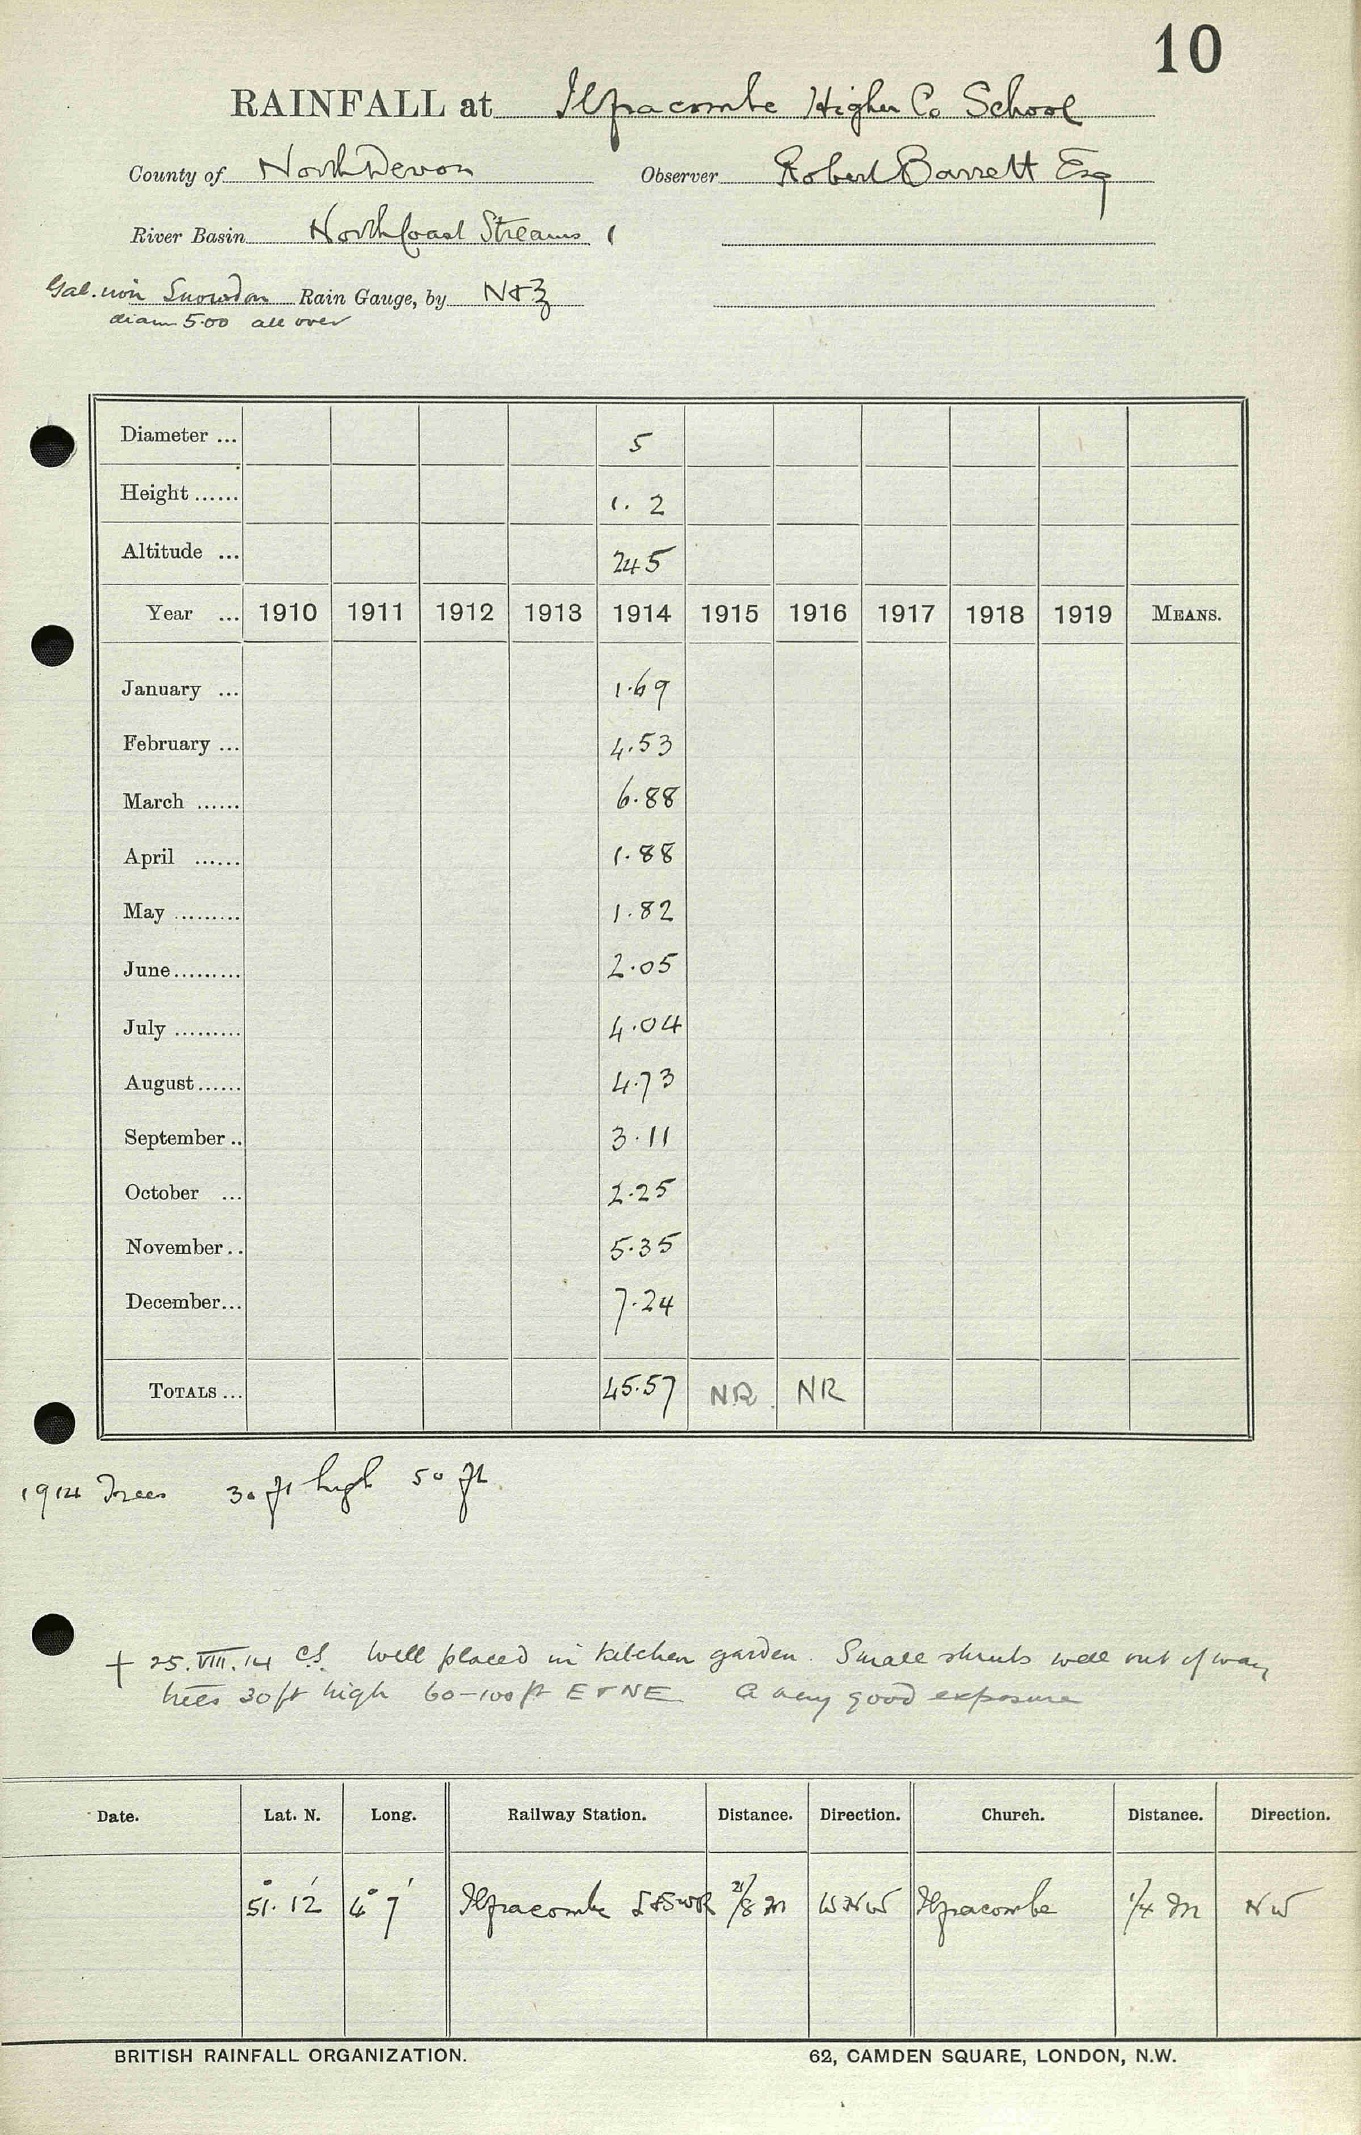 10
RAINFALL at Ilfracombe Higher Co School
County of North Devon Observer Robert Barrett Esq
River Basin North Coast Streams 1
Gal. iron Snowdon Rain Gauge, by N+Z
diam 5.00 all over
Diameter ... 5
Height ...... 1. 2
Altitude ... 245
Year ... 1910 1911 1912 1913 1914 1915 1916 1917 1918 1919 MEANS.
January ... 1.69
February ... 4.53
March ...... 6.88
April ...... 1.88
May ......... 1.82
June......... 2.05
July ......... 4.04
August...... 4.73
September .. 3.11
October ... 2.25
November .. 5.35
December... 7.24
TOTALS ... 45.57 NR. NR
1914 Trees 30 ft high 50 ft.
+ 25.VIII.14 C.S. Well placed in kitchen garden. Small shrubs well out of way
trees 30ft high 60-100ft E & NE. A very good exposure
Date. Lat. N. Long. Railway Station. Distance. Direction. Church. Distance. Direction.
51° 12' 4° 7' Ilfracombe /8 m WNW Ilfracombe 1/4 m NW
BRITISH RAINFALL ORGANIZATION. 62, CAMDEN SQUARE, LONDON, N.W.